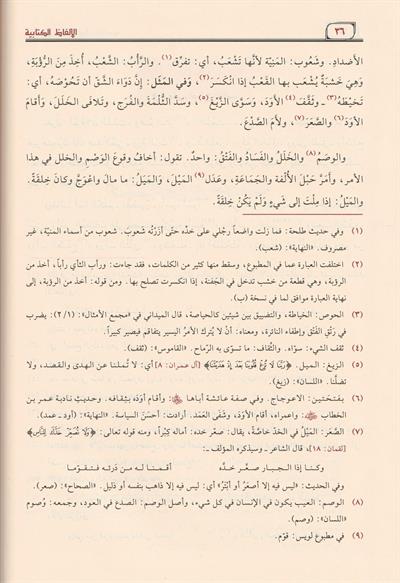 ٣٦
الألفاظ الكتابية
الأضدادِ. وشَعُوب: المَنِيَّة لأنَّها تَشْعَبُ، أي: تفرِّق(١). والرأبُ: الشَّعْبُ، أُخِذَ مِنَ الرُّؤبَةِ،
وَهِيَ خَشَبَةٌ يُشْعَب بها القَعْبُ إذا انْكَسَرَ(٢)، وفي المَثَل: إن دَوَاءَ الشَّق أن تَحُوْصَهُ، أي:
تَخِيْطَهُ(٣). وثَقَّفَ(٤) الأوَدَ، وَسَوَّى الزَّيْغَ(٥)، وسَدَّ الثُّلْمَةَ والفُرَجَ، وتَلافَى الخَلَلَ، وأقامَ
الأوَدَ(٦) والصَّعَرَ(٧)، ولأَمَ الصَّدْعَ.
والوصَمُ(٨) والخَلَلُ والفَسَادُ والفَتْقُ: واحدٌ. تقول: أخافُ وقوعَ الوَصْمِ والخلل في هذا
الأمر، وأمَرَّ حَبْلَ الأُلْفة والجَمَاعَةِ، وعَدَل(٩) المَيْلَ، وَالمَيَلُ: ما مالَ واعْوَجَّ وكانَ خِلقَةً.
والمَيْلُ: إذا مِلْتَ إلى شَيءٍ وَلَمْ يَكُنْ خِلْقَةً.
(١) وفي حديث طلحة: فما زلت واضعاً رجْلي على خدِّه حتَّى أزَرْتُه شَعوبَ. شعوب من أسماء المنيّة، غير
مصروف. «النهاية»: (شعب).
(٢) اختلفت العبارة عما في المطبوع، وسقط منها كثير من الكلمات، فقد جاءت: ورأب الثأي رأباً، أخذ من
الرؤبة، وهي قطعة من خشب تدخل في الجَفنة، إذا انكسرت تصلح بها. ومن قوله: أخذ من الرؤبة، إلى
نهاية العبارة موافق لما في نسخة (ب)
(٣) الحوص: الخياطة، والتضييق بين شيئين كالحياصة، قال الميداني في «مجمع الأمثال»: (٢/١): يضرب
في رَتْقِ الفَتْق وإطفاء النائرة، ومعناه: أنْ لا يُترك الأمرُ اليسير يتفاقم فيصير كبيراً.
(٤) ثقف الشيء: سوّاه. والثِّقاف: ما تسوّى به الرّماح. «القاموس»: (ثقف).
(٥) الزيغ: الميل. ﴿رَبَّنَا لَا تُزِغْ قُلُوبَنَا بَعْدَ إِذْ هَدَيْتَنَا﴾ [آل عمران: ٨] أي: لا تُملنا عن الهدى والقصد، ولا
تضلَّنا. «اللسان»: (زيغ).
(٦) بفتحتين: الاعوجاج. وفي صفة عائشة أباها: وأقام أوَدَه بثِقافه. وحديث نادبة عمر بن
الخطاب: واعمراه، أقام الأوَدَ، وشَفَى العَمَد. أرادت: أحسَنَ السياسة. «النهاية»: (أود ـ عمد).
(٧) الصَّعَر: المَيْلُ في الخدّ خاصَّة، يقال: صعّر خده: أماله كِبْراً، ومنه قوله تعالى: ﴿وَلَا تُصَعِّرْ خَدَّكَ لِلنَّاسِ﴾
[لقمان: ١٨]، قال الشاعر ـ وسيذكره المؤلف ـ:
وكنا إذا الجبار صعر خدَّه أقمنا له من درئه فتقوّما
وفي الحديث: «ليس فيه إلا أصعَرُ أو أبْتَرُ» أي: ليس فيه إلا ذاهب بنفسه أو ذليل. «الصحاح»: (صعر).
(٨) الوصم: العيب يكون في الإنسان في كل شيء، وأصل الوصم: الصدع في العود، وجمعه: وُصوم
«اللسان»: (وصم).
(٩) في مطبوع لويس: قوّم.